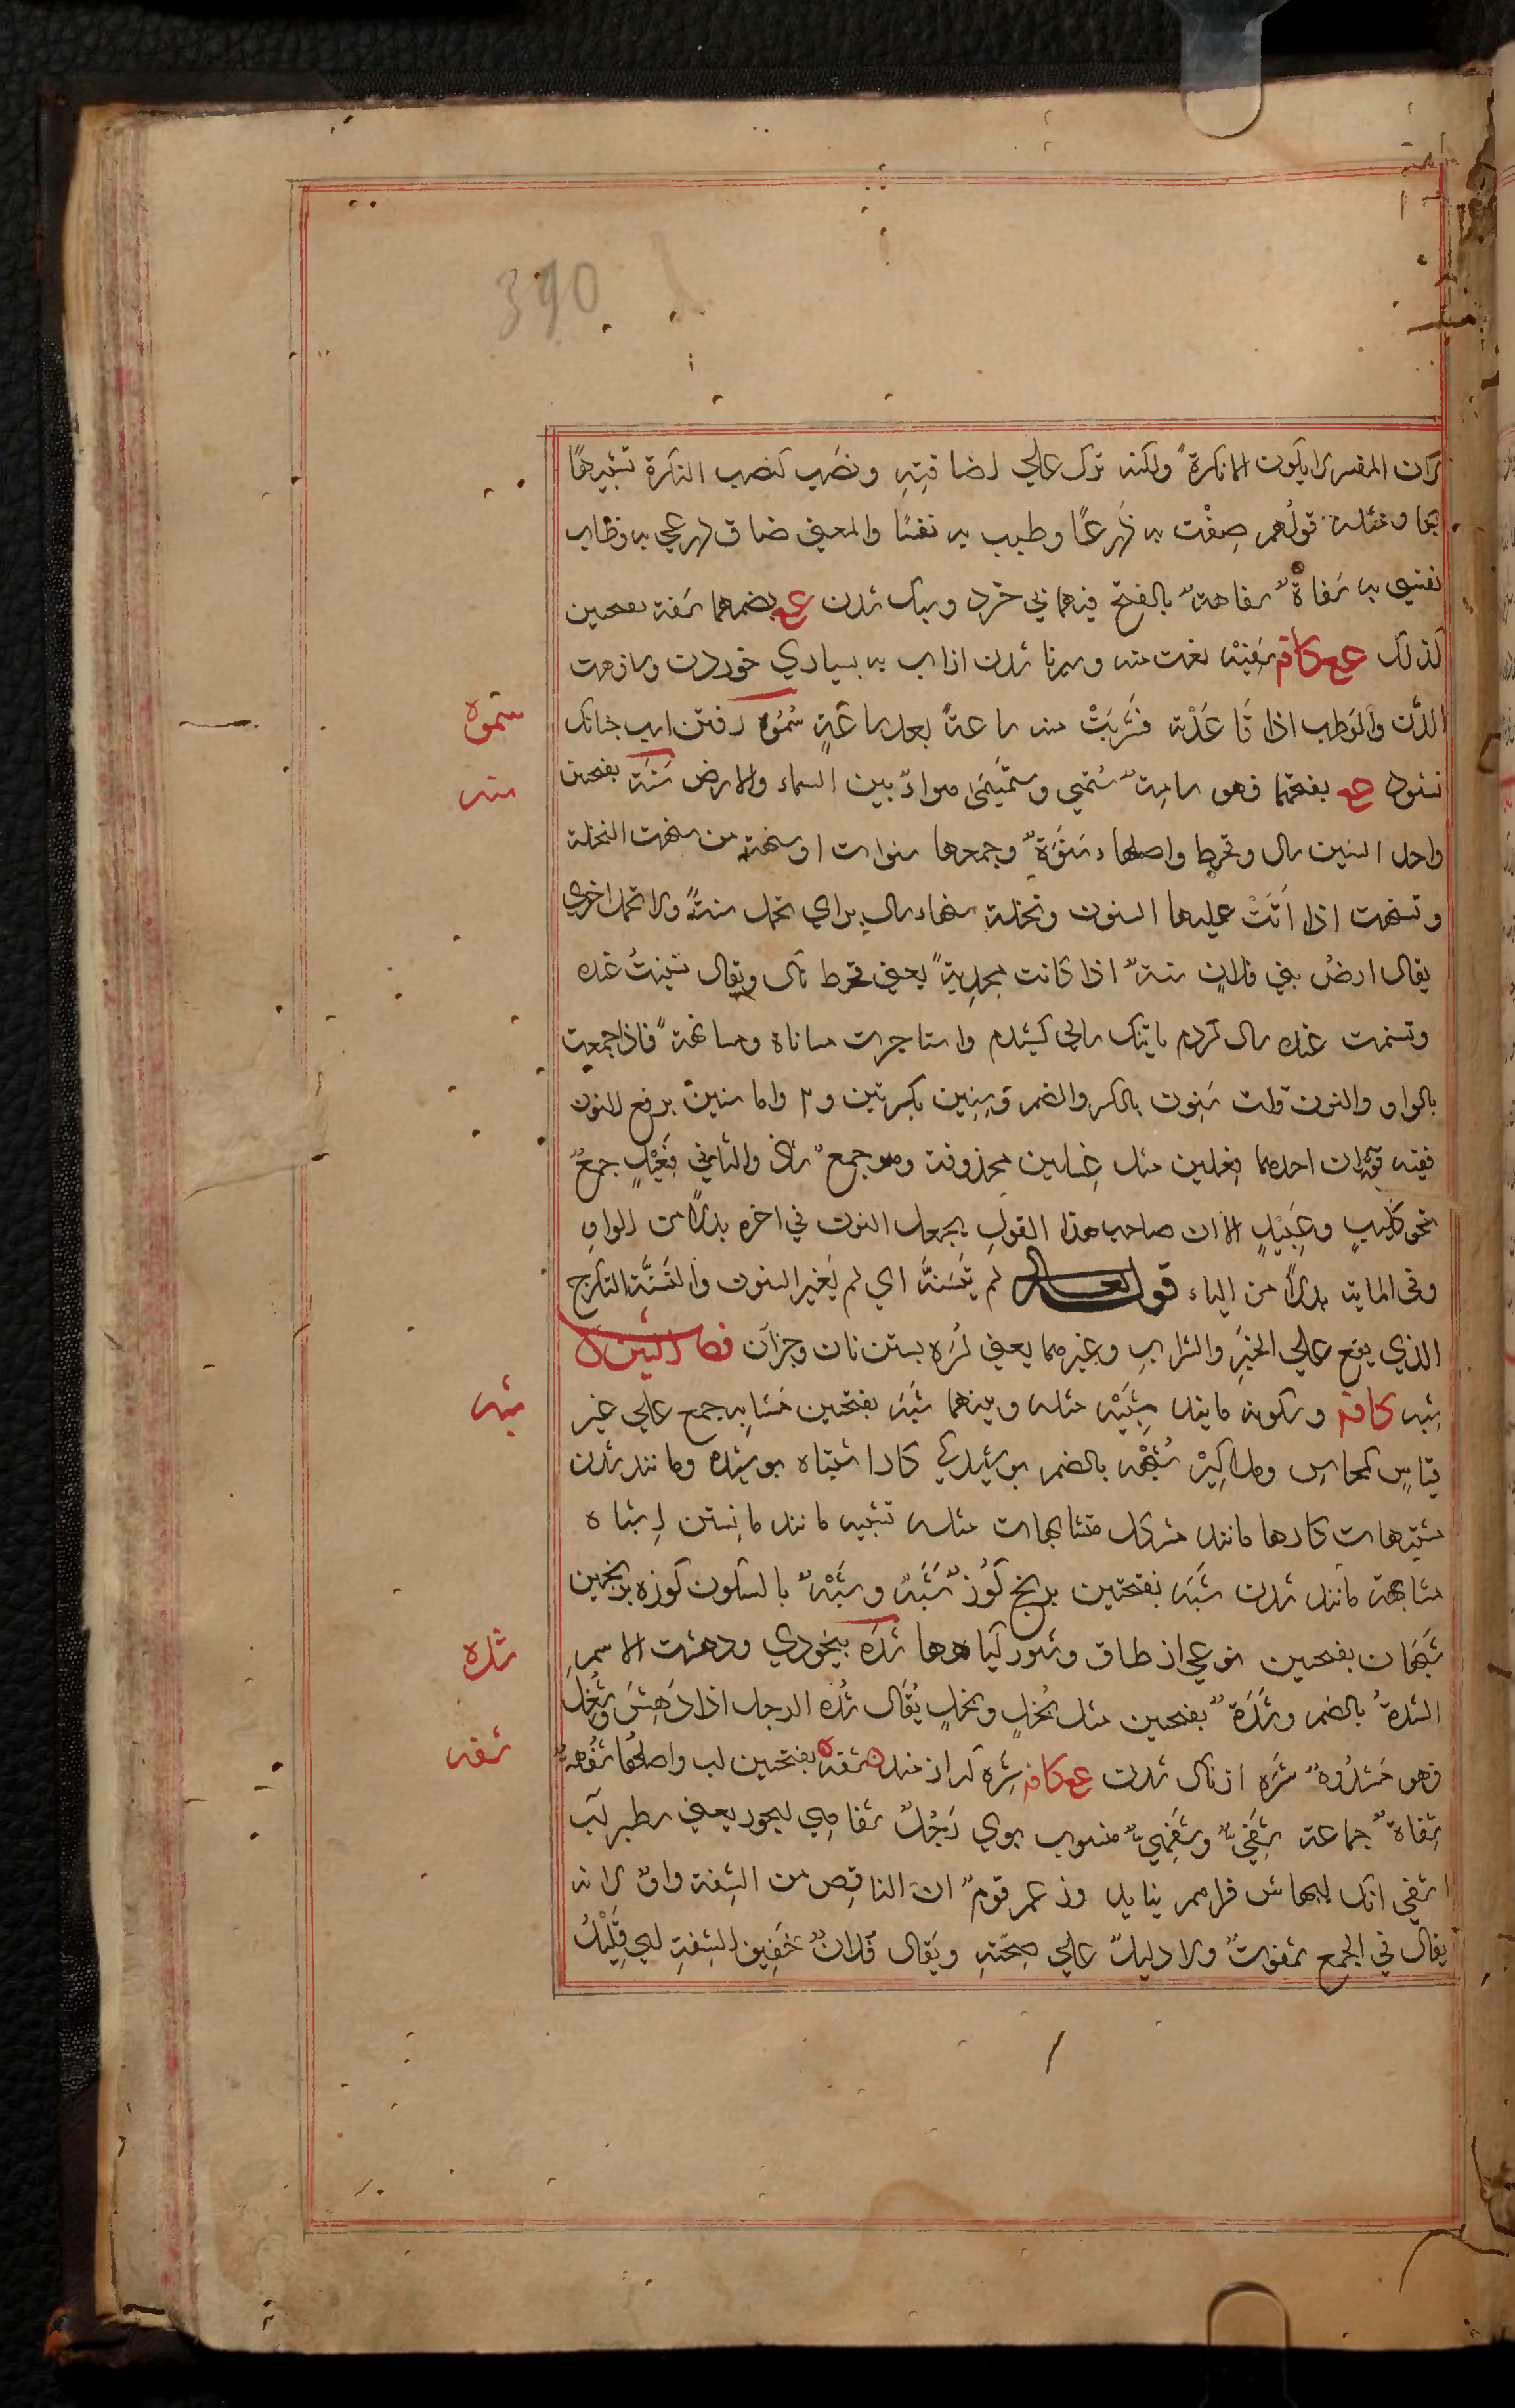 390
لان المفسر لا يكون الا نكرة ولكنه ترك على اضافته ونصب كنصب النكرة تشبيها
بها ومثله قولهم ضقت به ذرعا وطبت به نفسا والمعنى ضاق ذرعي به وطاب
نفسي به سفاة سفاهة بالفتح فيهما بي خرد وسبك شدن ع بضمهما سفه بفتحين
كذلك ع كافه سفيه نعت منه وسيرنا شدن از آب به بسياري خوردن وسافهت
الدن والوطب اذا قاعدته فشربت منه ساعة بعد ساعة سموه رفتن اسب چنانك
نشود ع بفتحهما فهو سامه سمهي وسميهى هواء بين السماء والارض سنة بفتحين
واحد السنين سال وقحط واصلها سنوة وجمعها سنوات او سنهة من سنهت النخلة
وتسنهت اذا اتت عليها السنون ونخلة سنهاء سال براي تحمل سنة ولا تحمل اخرى
يقال ارض بني فلان سنة اذا كانت مجدبة يعني قحط سال ويقال تسنيت عنده
وتسنهت عنده سال كردم باينك سالي كشيدم واستاجرت مساناة ومسانهة فاذا جمعت
بالواو والنون قلت سنون بالكسر والضم وسنين بكسرتين و٢ واما سنين برفع النون
ففيه قولان احدهما فعلين مثل غسلين محذوفة وهو جمع شاذ والثاني فعيل جمع
نحو كليب وعبيد الا ان صاحب هذا القول يجعل النون في اخره بدلا من الواو
وفي الماية بدلا من الياء قوله تعالى لم يتسنه اي لم يغير السنون والتسنه التكرج
الذي يقع على الخبز والشراب وغيرهما يعني كره بستن نان وجزآن فصل الشين
شبه كافه وسكونه مانند شبيه مثله وبينهما شبه بفتحين مشابه جمع على غير
قياس كمحاسن ومذاكير شبهه بالضم پوشيدگي كار اشتباه پوشيده ومانند شدن
مشتبهات كارها مانند مشكل متشابهات مثله تشبيه مانند مانستن اشباه
مشابهة مانند شدن شبه بفتحتين برنج كوز شبه وشبه بالسكون كوزه برنجين
شبهان بفتحين نوعي از طاق وشور گياهها شده بيخودي ودهشت الاسم
الشده بالضم وشده بفتحين مثل بخل وبخل يقال شده الرجل اذا دهش وشغل
فهو مشدوه شره از ناك شدن ع كافه شره كه از منه شفه بفتحتين لب واصلها شفهة
شفاه جماعة شفي وشفهي منسوب بوي رجل شفاهي ليجوز يعني سطبر لب
اشفى انك لبهاش فراهم نيايد وزعم قوم ان الناقص من الشفة واو لانه
يقال في الجمع شفوات ولا دليل على صحته ويقال فلان خفيف الشفة اي قليل
سموه
سنه
شبه
شده
شفه